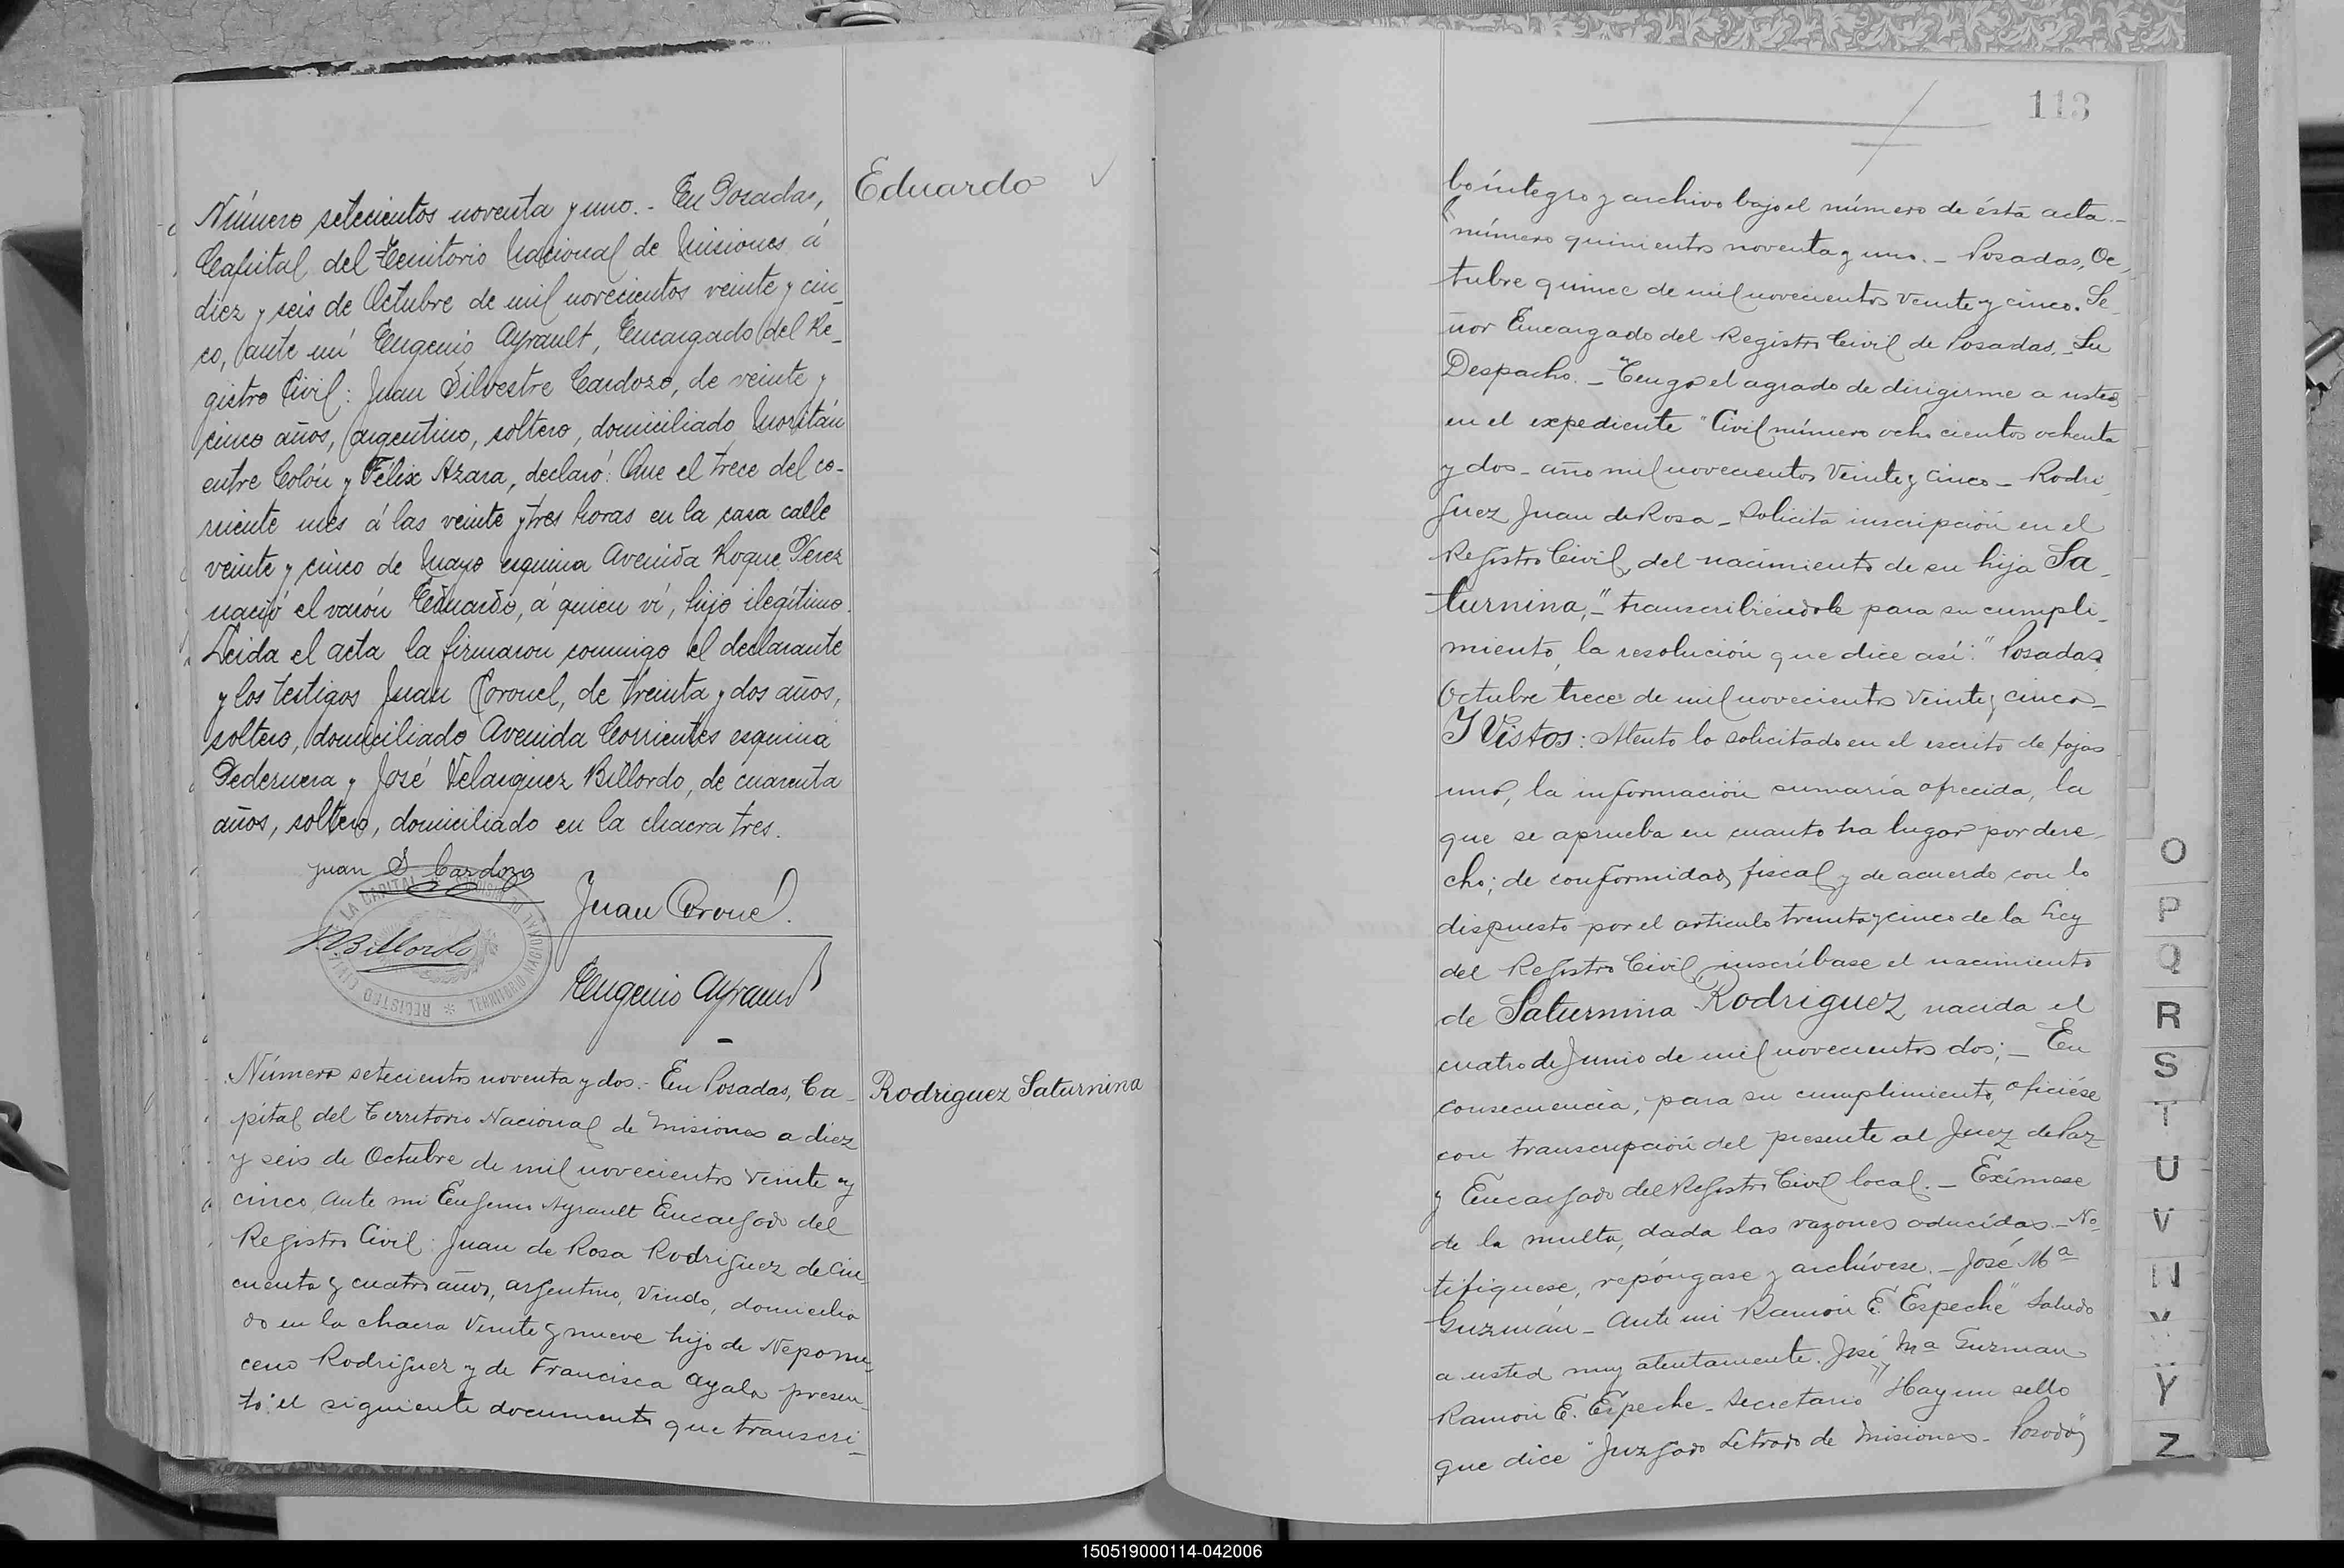 Eduardo
Número setecientos noventa y uno. - En Posadas,
Capital del Territorio Nacional de Misiones á
diez y seis de Octubre de mil novecientos veinte y cin-
co, ante mí Eugenio Ayrault, Encargado del Re-
gistro Civil: Juan Silvestre Cardozo, de veinte y
cinco años, argentino, soltero, domiciliado
entre Colón y Félix Azara, declaró: Que el trece del co-
rriente mes á las veinte y tres horas en la casa calle
veinte y cinco de Mayo esquina Avenida Roque Perez
nació el varón Eduardo, á quien ví, hijo ilegítimo.
Leida el acta la firmaron conmigo el declarante
y los testigos Juan Coronel, de treinta y dos años,
soltero, domiciliado Avenida Corrientes esquina
Pedernera y José Velazquez Billordo, de cuarenta
años, soltero, domiciliado en la chacra tres.
Juan S. Cardozo
Juan Coronel.
Billordo
Eugenio Ayrault
REGISTRO CIVIL LA CAPITAL TERRITORIO NACIONAL DE MISIONES
Rodriguez Saturnina
Número setecientos noventa y dos. - En Posadas, Ca-
pital del Territorio Nacional de Misiones a diez
y seis de Octubre de mil novecientos veinte y
cinco, ante mi Eugenio Ayrault Encargado del
Registro Civil: Juan de Rosa Rodriguez de cin-
cuenta y cuatro años, argentino, viudo, domicilia-
do en la chacra veinte y nueve hijo de Nepomu-
ceno Rodriguez y de Francisca Ayala presen-
tó el siguiente documento que transcri-
113
bo íntegro y archivo bajo el número de ésta acta. -
"número quinientos noventa y uno. - Posadas, Oc-
tubre quince de mil novecientos veinte y cinco. Se-
ñor Encargado del Registro Civil de Posadas. - Su
Despacho. - Tengo el agrado de dirigirme a usted
en el expediente "Civil número ocho cientos ochenta
y dos - año mil novecientos veinte y cinco - Rodri-
guez Juan de Rosa - Solicita inscripción en el
Registro Civil, del nacimiento de su hija Sa-
turnina," - transcribiéndole para su cumpli-
miento, la resolución que dice así: "Posadas
Octubre trece de mil novecientos veinte y cinco -
Y Vistos: Atento lo solicitado en el escrito de fojas
uno, la información sumaria ofrecida, la
que se aprueba en cuanto ha lugar por dere-
cho; de conformidad fiscal y de acuerdo con lo
dispuesto por el articulo treinta y cinco de la Ley
del Registro Civil, inscríbase el nacimiento
de Saturnina Rodriguez, nacida el
cuatro de Junio de mil novecientos dos; - En
consecuencia, para su cumplimiento, ofíciese
con transcripción del presente al Juez de Paz
y Encargado del Registro Civil local. - Exímese
de la multa, dada las razones aducidas. - No-
tifiquese, repóngase y archívese. - José Mª
Guzmán - Ante mi Ramón E. Espeche" Saludo
a usted muy atentamente. José Mª Guzman
Ramon E. Espeche - Secretario" Hay un sello
que dice "Juzgado Letrado de Misiones - Posadas"
O
P
Q
R
S
T
U
V
W
Y
Z
150519000114-042006